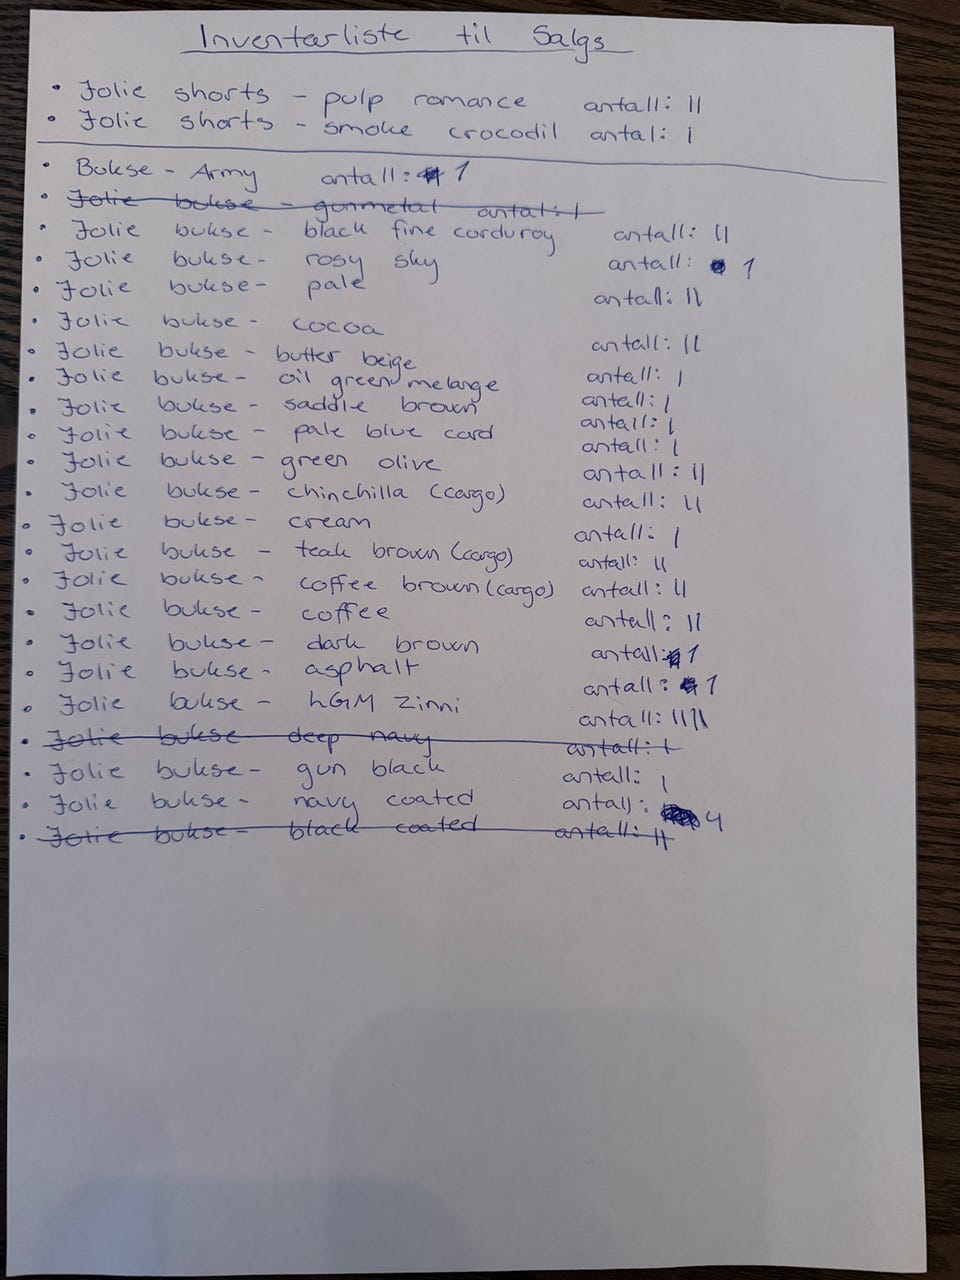 Inventarliste til Salgs
• Jolie shorts - pulp romance antall: II
• Jolie shorts - smoke crocodil antal: I
• Bukse - Army antall: 1
• Jolie bukse - gunmetal antal: I
• Jolie bukse - black fine corduroy antall: II
• Jolie bukse - rosy sky antall: 1
• Jolie bukse - pale antall: II
• Jolie bukse - cocoa antall: II
• Jolie bukse - butter beige antall: I
• Jolie bukse - oil green melange antall: I
• Jolie bukse - saddle brown antall: I
• Jolie bukse - pale blue card antall: I
• Jolie bukse - green olive antall: II
• Jolie bukse - chinchilla (cargo) antall: II
• Jolie bukse - cream antall: I
• Jolie bukse - teak brown (cargo) antall: II
• Jolie bukse - coffee brown (cargo) antall: II
• Jolie bukse - coffee antall: II
• Jolie bukse - dark brown antall: 1
• Jolie bukse - asphalt antall: 1
• Jolie bukse - hGM Zinni antall: IIII
• Jolie bukse - deep navy antall: I
• Jolie bukse - gun black antall: I
• Jolie bukse - navy coated antall: 4
• Jolie bukse - black coated antall: II